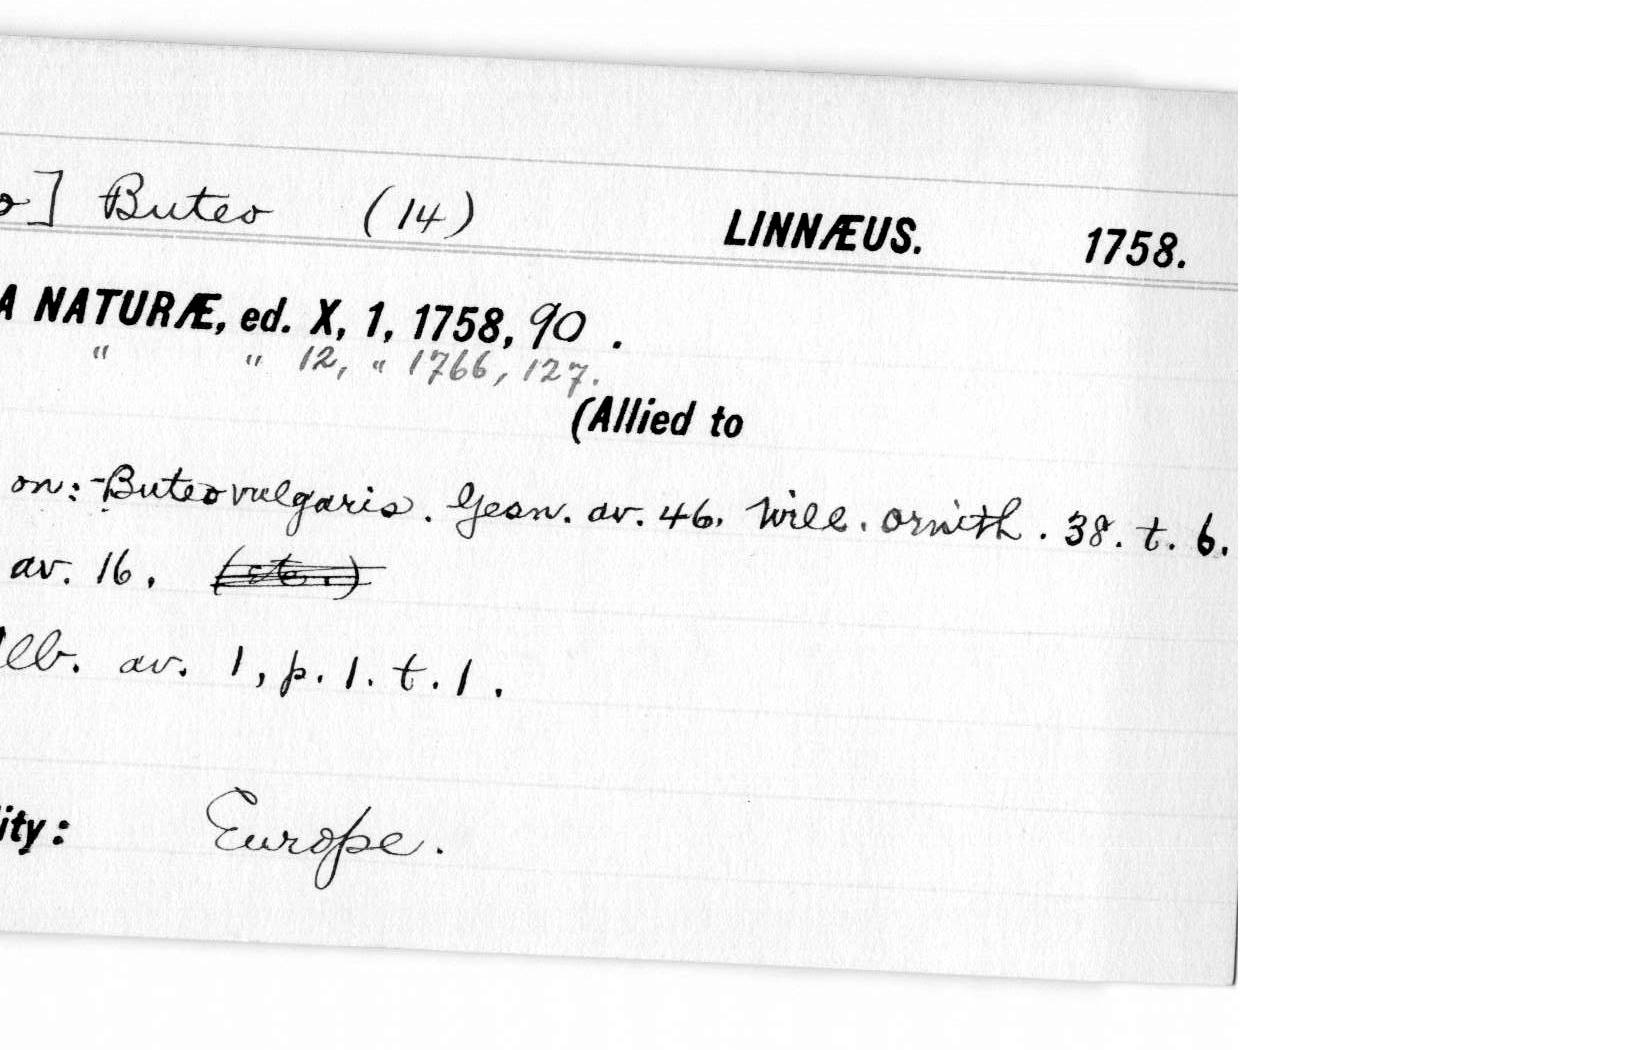 o] Buteo (14) LINNÆUS. 1758.
A NATURÆ, ed. X, 1, 1758, 90 .
" " 12, " 1766, 127.
(Allied to
on:- Buteo vulgaris. Gesn. av. 46. Will. ornith. 38. t. 6.
av. 16. (etc.)
Alb. av. 1, p. 1. t. 1.
ity: Europe.